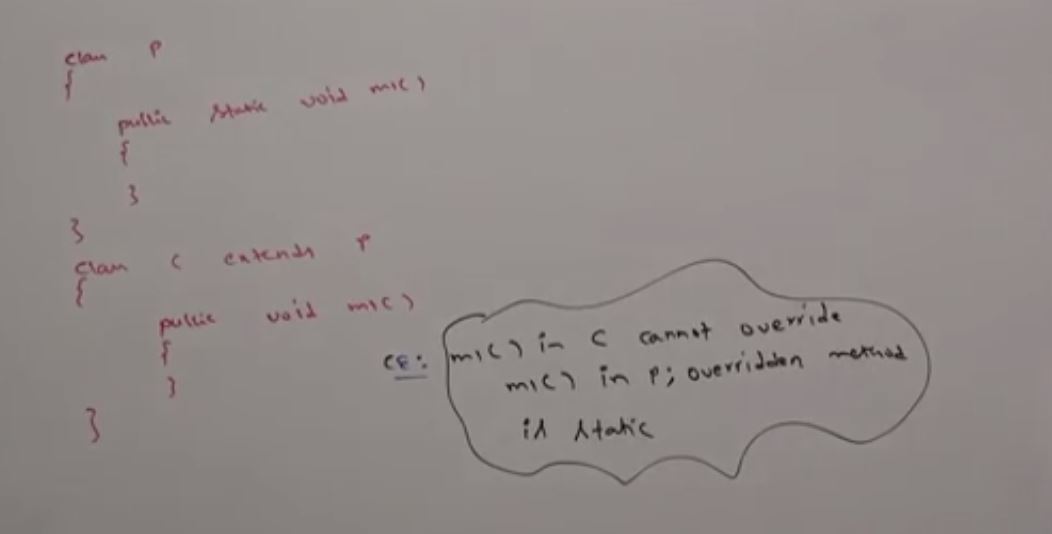 class P
{
public static void m1()
{
}
}
class C extends P
{
public void m1()
{
}
}
CE: m1() in C cannot override
m1() in P; overridden method
is static